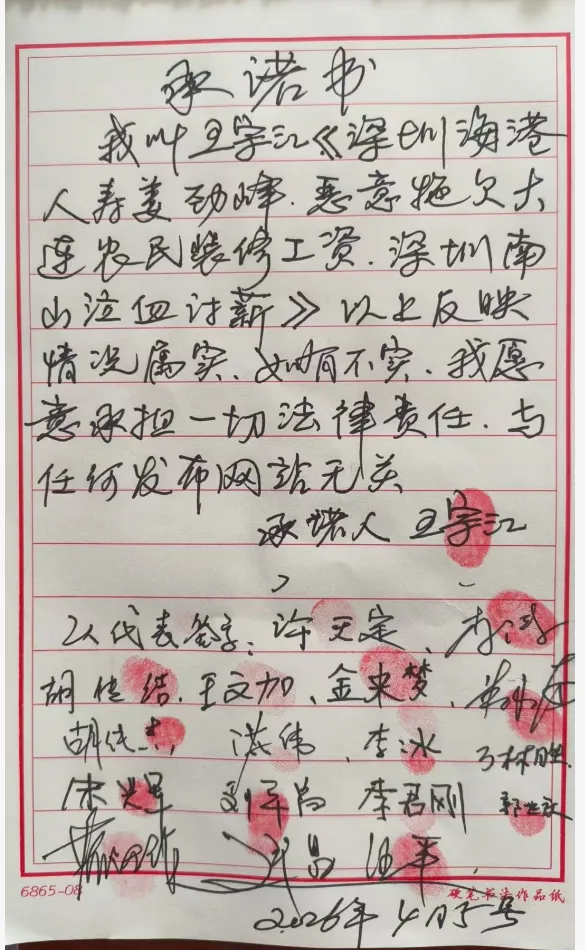 承诺书
我叫王字江《深圳海港
人寿姜劲峰.恶意拖欠大
连农民装修工资.深圳南
山泣血讨薪》以上反映
情况属实、如有不实.我愿
意承担一切法律责任.与
任何发布网站无关
承诺人 王字江
工人代表签字:许天定、
胡传结.王文加、金来梦、
洪伟 李冰
宋 李君刚
6865-08 硬笔书法作品纸
2026年4月5号